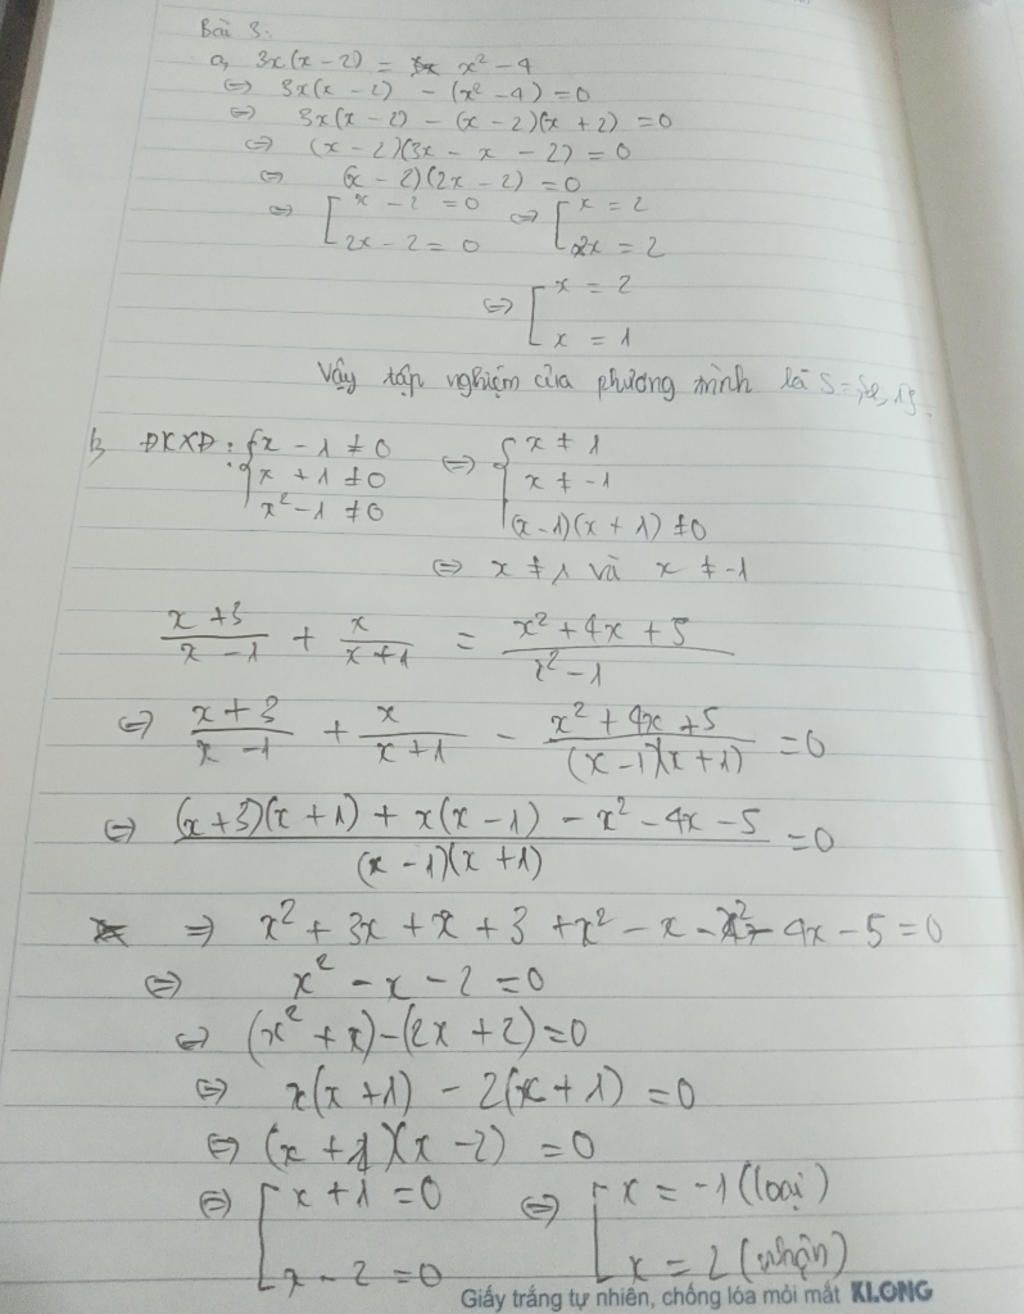 Bài 3.
a, 3x(x - 2) = x² - 4
⇔ 3x(x - 2) - (x² - 4) = 0
⇔ 3x(x - 2) - (x - 2)(x + 2) = 0
⇔ (x - 2)(3x - x - 2) = 0
⇔ (x - 2)(2x - 2) = 0
⇔ [ x - 2 = 0 ⇔ [ x = 2
2x - 2 = 0 2x = 2
⇔ [ x = 2
x = 1
Vậy tập nghiệm của phương trình là S = {2, 1}.
b, ĐKXĐ: { x - 1 ≠ 0 ⇔ { x ≠ 1
x + 1 ≠ 0 x ≠ -1
x² - 1 ≠ 0 (x - 1)(x + 1) ≠ 0
⇔ x ≠ 1 và x ≠ -1
x + 3 / x - 1 + x / x + 1 = x² + 4x + 5 / x² - 1
⇔ x + 3 / x - 1 + x / x + 1 - x² + 4x + 5 / (x - 1)(x + 1) = 0
⇔ (x + 3)(x + 1) + x(x - 1) - x² - 4x - 5 / (x - 1)(x + 1) = 0
⇒ x² + 3x + x + 3 + x² - x - x² - 4x - 5 = 0
⇔ x² - x - 2 = 0
⇔ (x² + x) - (2x + 2) = 0
⇔ x(x + 1) - 2(x + 1) = 0
⇔ (x + 1)(x - 2) = 0
⇔ [ x + 1 = 0 ⇔ [ x = -1 (loại)
x - 2 = 0 x = 2 (nhận)
Giấy trắng tự nhiên, chống lóa mỏi mắt KLONG